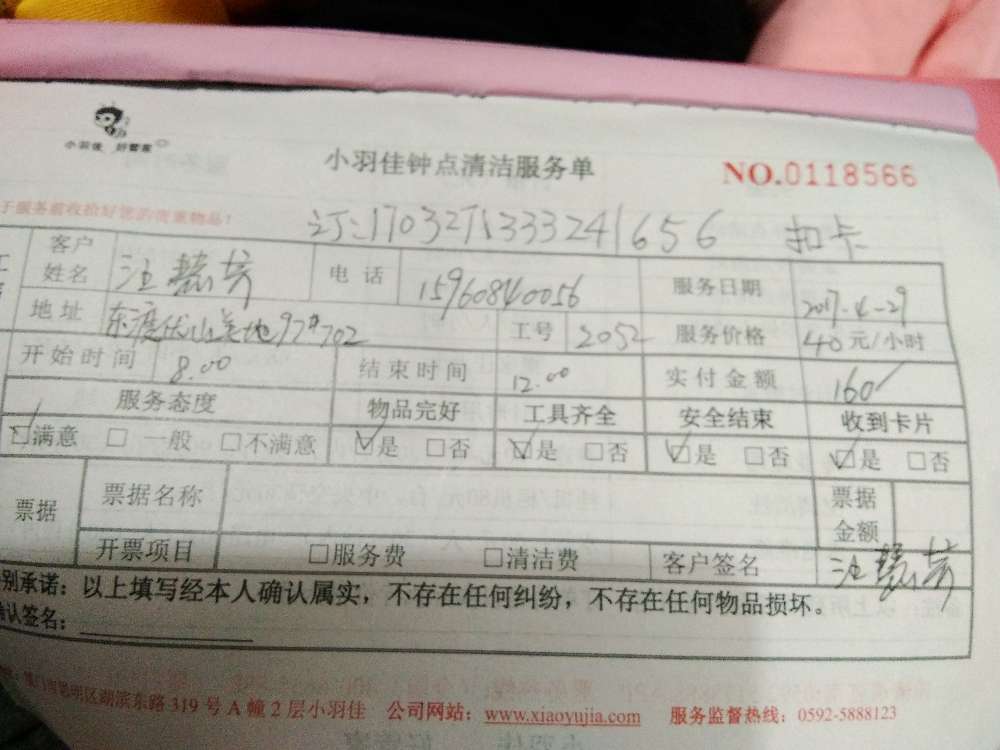 小羽佳 好管家
小羽佳钟点清洁服务单
NO.0118566
于服务前收拾好您的贵重物品!
订:170327133324 1656 扣卡
客户姓名 汪慧芳 电话 15960840056 服务日期 2017-4-29
地址 东渡伏山美地97#702 工号 2052 服务价格 40元/小时
开始时间 8.00 结束时间 12.00 实付金额 160
服务态度 物品完好 工具齐全 安全结束 收到卡片
☑满意 □一般 □不满意 ☑是 □否 ☑是 □否 ☑是 □否 ☑是 □否
票据 票据名称 票据金额
开票项目 □服务费 □清洁费 客户签名 汪慧芳
别承诺:以上填写经本人确认属实,不存在任何纠纷,不存在任何物品损坏。
确认签名:
厦门市思明区湖滨东路319号A幢2层小羽佳 公司网站:www.xiaoyujia.com 服务监督热线:0592-5888123